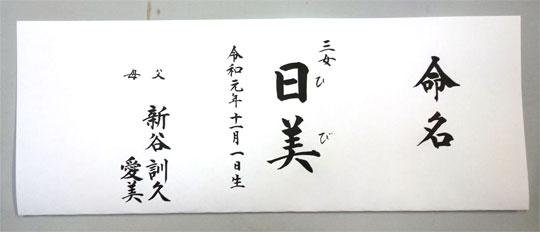 命名
三女
ひび
日美
令和元年十一月一日生
父 新谷 訓久
母 愛美